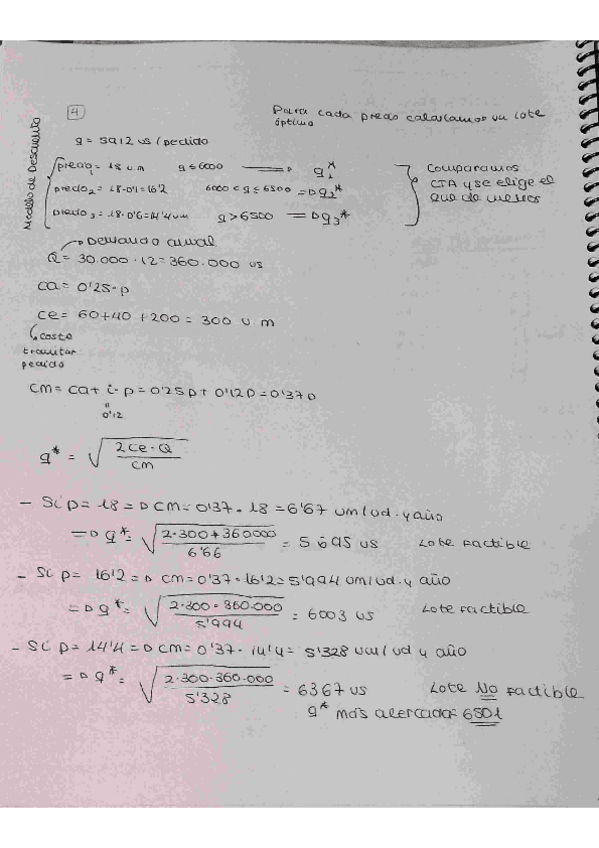 4
Para cada precio calculamos un lote
óptimo
q = 5912 us/pedido
Modelo de Descuento
precio1 = 18 u.m q ≤ 6000 ⟹ q1*
precio2 = 18·0'9 = 16'2 6000 < q ≤ 6500 ⟹ q2*
precio3 = 18·0'8 = 14'4 um q > 6500 ⟹ q3*
Comparamos
CTA y se elige el
que de menos
Demanda anual
Q = 30.000 · 12 = 360.000 us
ca = 0'25·p
ce = 60 + 40 + 200 = 300 u.m
costo
tramitar
pedido
cm = ca + i·p = 0'25p + 0'12p = 0'37p
0'12
q* = √(2ce·Q / cm)
- Si p = 18 ⟹ cm = 0'37 · 18 = 6'67 um/ud. y año
⟹ q* = √(2·300·360000 / 6'66) = 5695 us Lote factible
- Si p = 16'2 ⟹ cm = 0'37 · 16'2 = 5'994 um/ud. y año
⟹ q* = √(2·300·360.000 / 5'994) = 6003 us Lote factible
- Si p = 14'4 ⟹ cm = 0'37 · 14'4 = 5'328 um/ud y año
⟹ q* = √(2·300·360.000 / 5'328) = 6367 us Lote No factible
q* más acercada: 6501